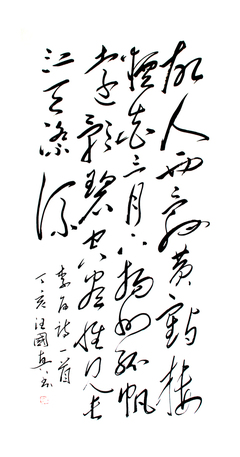 故人西辞黄鶴楼
煙花三月下揚州孤帆
遠影碧空盡惟見長
江天際流
李白詩一首
丁亥汪國真书